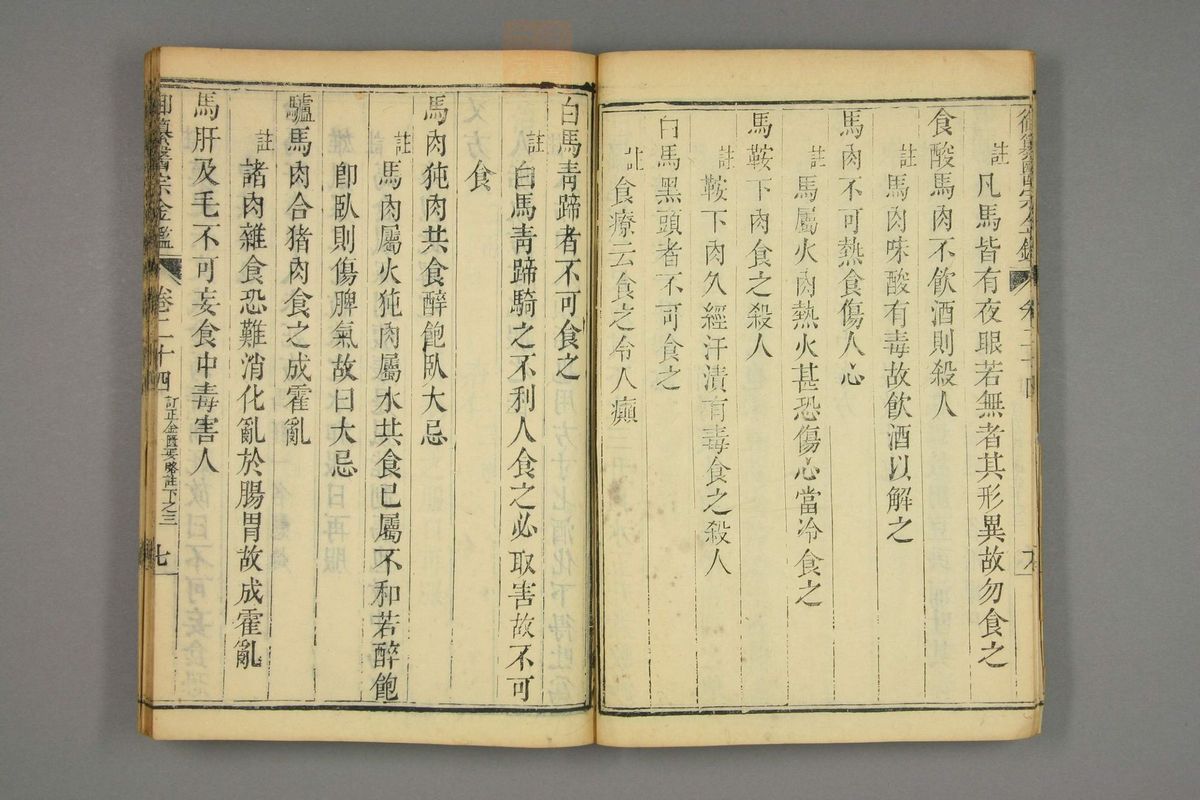 註凡馬皆有夜眼若無者其形異故勿食之
食酸馬肉不飲酒則殺人
註馬肉味酸有毒故飲酒以解之
馬肉不可熱食傷人心
註馬屬火肉熱火甚恐傷心當冷食之
馬鞍下肉食之殺人
註鞍下肉久經汗漬有毒食之殺人
白馬黑頭者不可食之
註食療云食之令人癲
白馬青蹄者不可食之
註白馬青蹄騎之不利人食之必取害故不可
食
馬肉㹠肉共食醉飽臥大忌
註馬肉屬火㹠肉屬水共食已屬不和若醉飽
卽臥則傷脾氣故曰大忌
驢馬肉合猪肉食之成霍亂
註諸肉雜食恐難消化亂於腸胃故成霍亂
馬肝及毛不可妄食中毒害人
御纂醫宗金鑑 卷二十四 訂正金匱要略註下之三 七